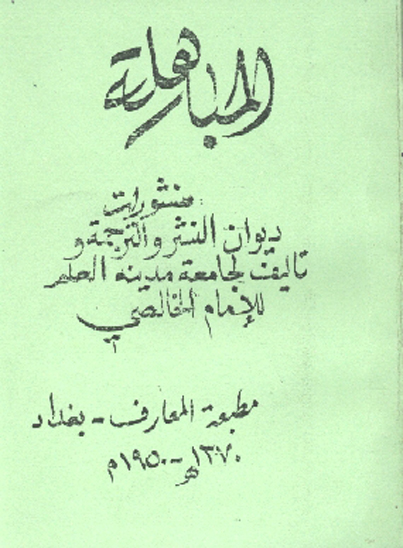 المباهلة
منشورات
ديوان النشر والترجمة و
تاليف لجامعة مدينه العلم
للإمام الخالصي
مطبعة المعارف - بغداد
١٣٧٠ هـ - ١٩٥٠ م